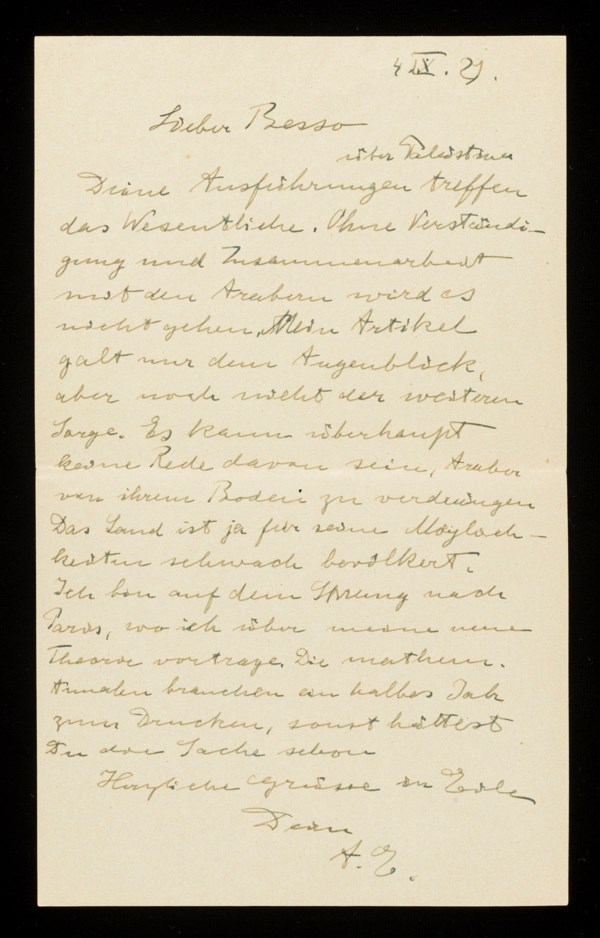 4. IX. 29.
Lieber Besso
über Palästina
Deine Ausführungen treffen
das Wesentliche. Ohne Verständi-
gung und Zusammenarbeit
mit den Arabern wird es
nicht gehen. Mein Artikel
galt nur dem Augenblick,
aber noch nicht der weiteren
Sorge. Es kann überhaupt
keine Rede davon sein, Araber
von ihrem Boden zu verdrängen
Das Land ist ja für seine Möglich-
keiten schwach bevölkert.
Ich bin auf dem Sprung nach
Paris, wo ich über meine neue
Theorie vortrage. Die mathem.
Annalen brauchen ein halbes Jahr
zum Drucken, sonst hättest
Du die Sache schon
Herzliche Grüsse in Eile
Dein
A. E.